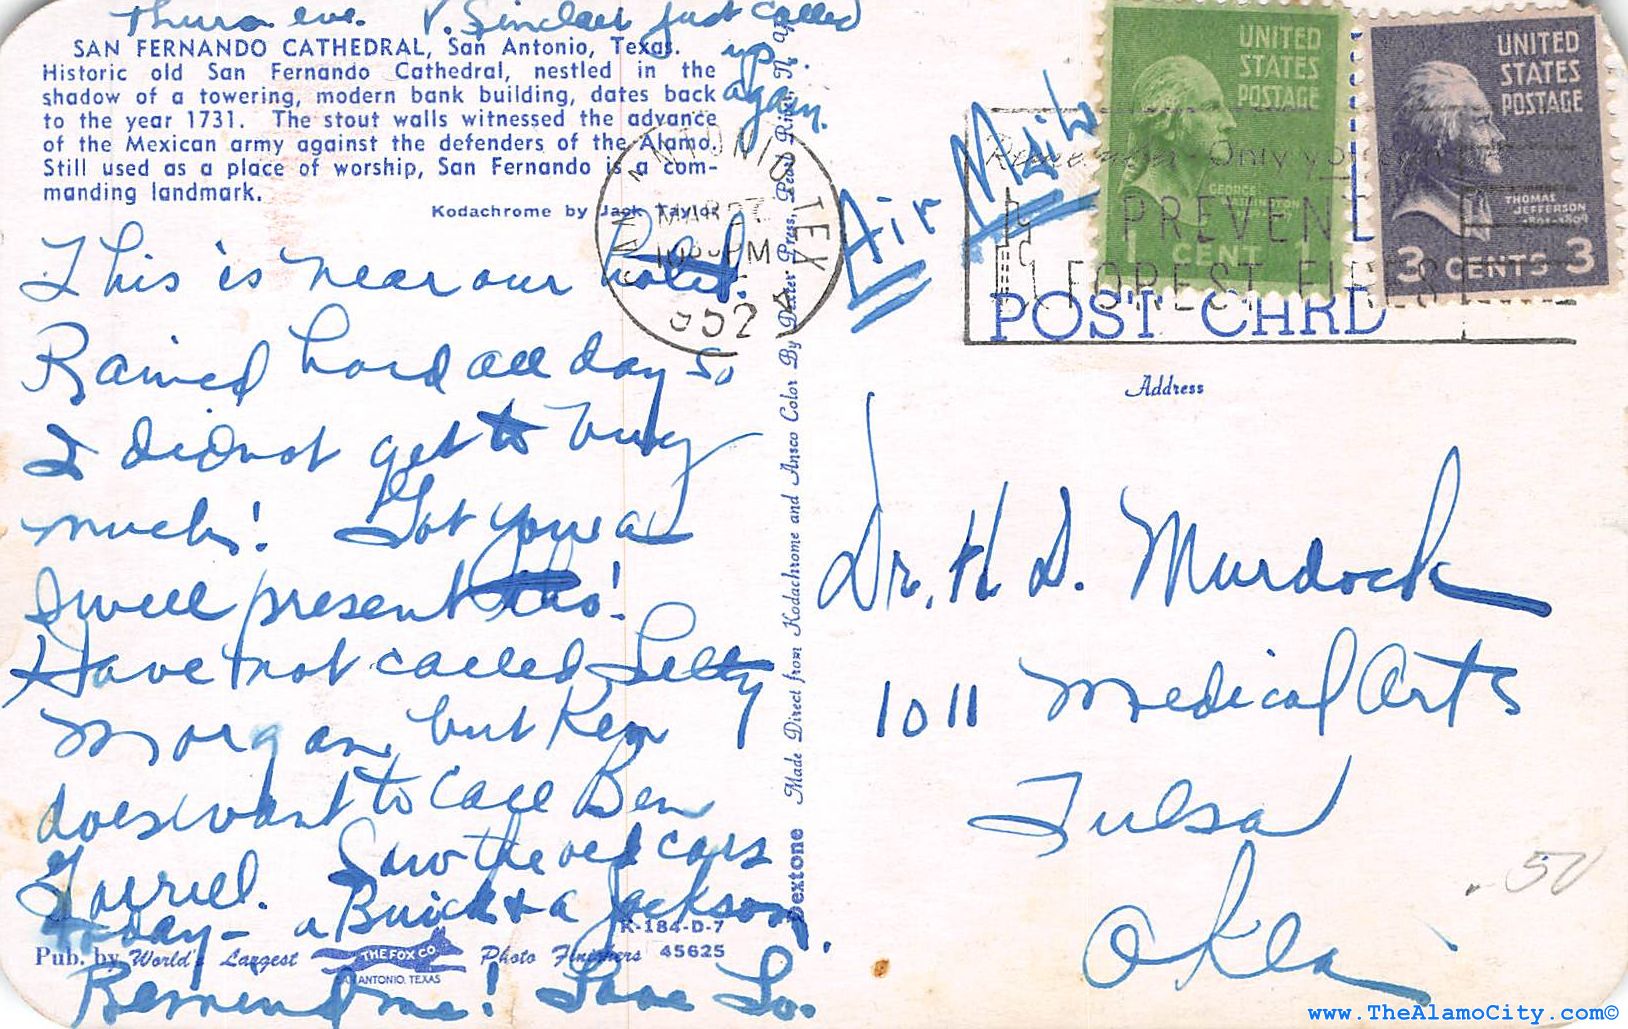 Thurs eve. V. Sinclair just called
up
again.
SAN FERNANDO CATHEDRAL, San Antonio, Texas.
Historic old San Fernando Cathedral, nestled in the
shadow of a towering, modern bank building, dates back
to the year 1731. The stout walls witnessed the advance
of the Mexican army against the defenders of the Alamo.
Still used as a place of worship, San Fernando is a com-
manding landmark.
Kodachrome by Jack Taylor
This is near our hotel.
Rained hard all day so
I did not get to buy
much! Got you a
swell present too!
Have not called
Morgan, but Ken
does want to call Ben
Saw the old cars
today - a Buick & a Jackson.
Remind me! Love Lo.
Pub. by World's Largest Photo Finishers
THE FOX CO.
SAN ANTONIO, TEXAS
K-184-D-7
45625
Dextone Made Direct from Kodachrome and Ansco Color By Dexter Press, Pearl River, N.
SAN ANTONIO TEX
PM
1952
Air Mail
Remember Only you can
PREVENT
FOREST FIRES
UNITED
STATES
POSTAGE
GEORGE
WASHINGTON
1 CENT 1
UNITED
STATES
POSTAGE
THOMAS
JEFFERSON
1801-1809
3 CENTS 3
POST CARD
Address
Dr. H. D. Murdock
1011 Medical Arts
Tulsa
Okla
.50
www.TheAlamoCity.com©